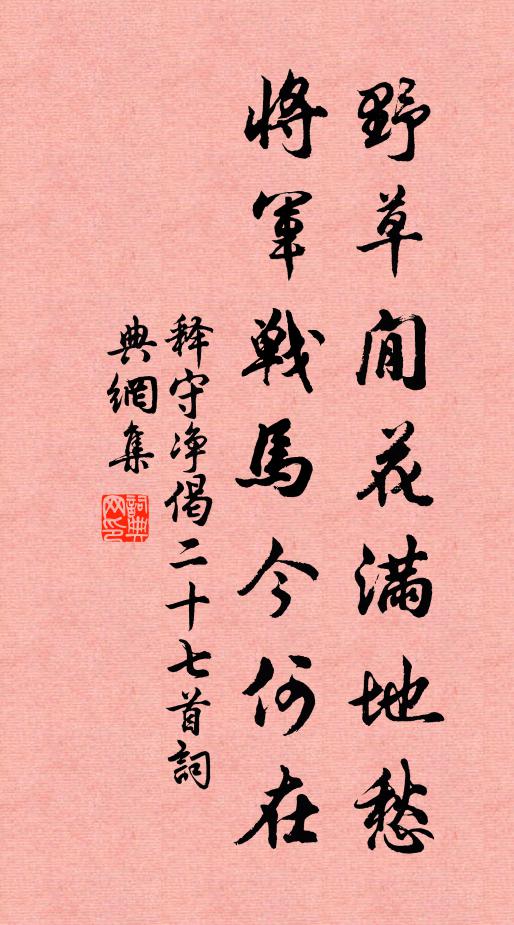 野草閒花滿地愁
將軍戰馬今何在
释守净偈二十七首詞
典網集
詞典网印